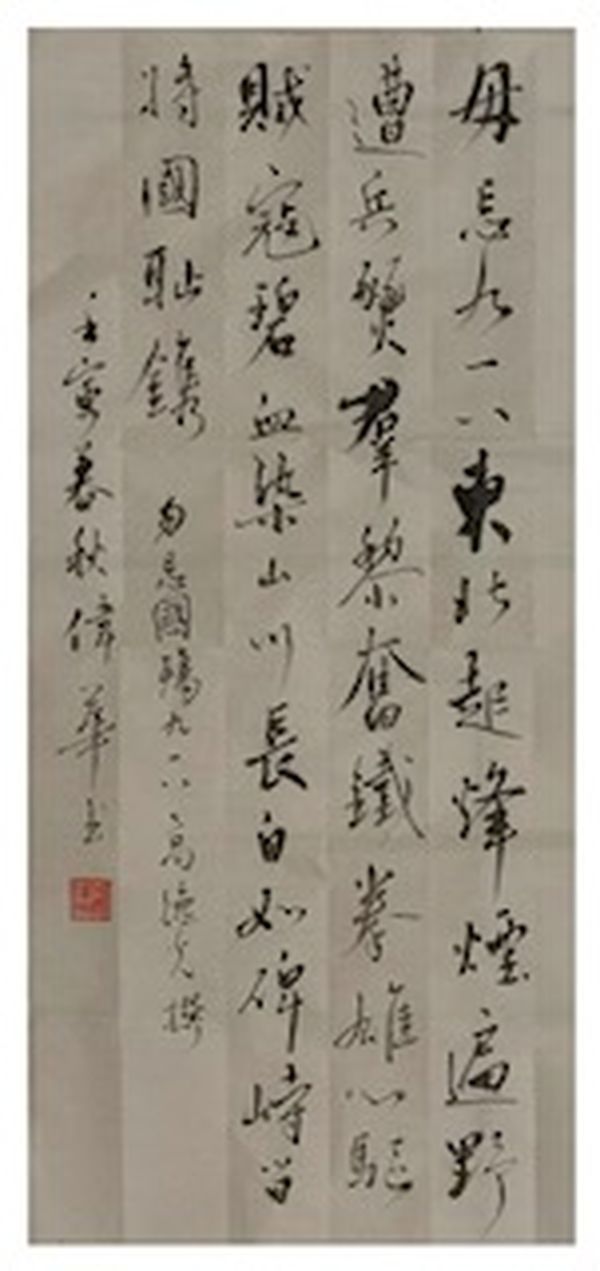 毋忘九一八東北起烽煙遍野
遭兵燹羣黎奮鐵拳雄心驅
賊寇碧血染山川長白如碑峙當
將國恥鐫
勿忘國殤九一八高德文撰
壬寅暮秋偉華書